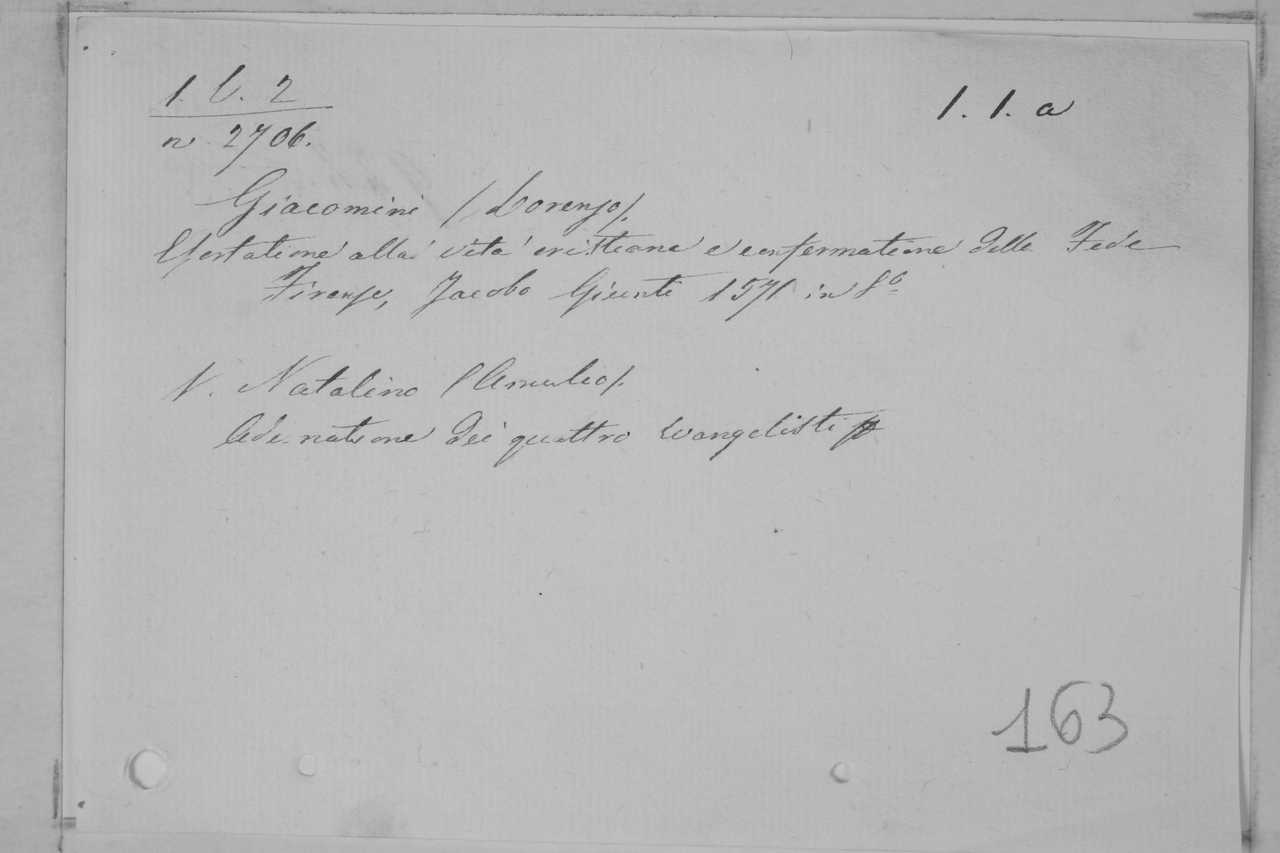 1. b. 2
1. 1. a
n 2706.
Giacomini (Lorenzo).
Esortatione alla vita cristiana e confermatione della Fede
Firenze, Jacobo Giunti 1571 in 8º
V. Natalino (Amuleo).
Adunatione dei quattro Evangelisti
163